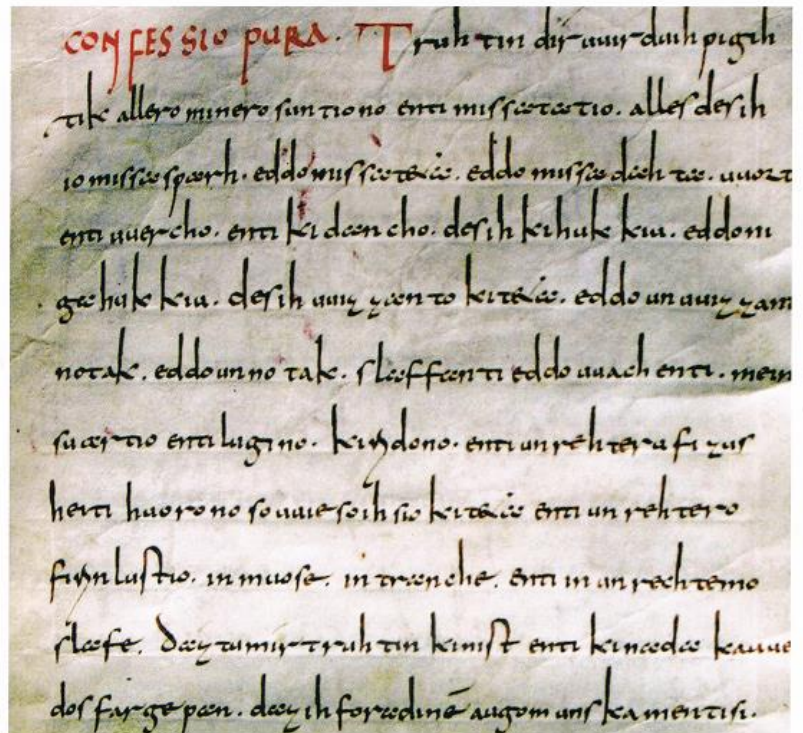 CONFESSIO PURA. Truhtin dir uuirdu ih pigih
tik allero minero suntiono enti missatatio. alles des ih
io missasparh. eddo missateta. eddo missadahta. uuort
enti uuercho. enti kidancho. des ih kihukkiu. eddo ni
gahukkiu. des ih uuizzanto kiteta. eddo unuuizzan
notak. eddo unnotak. slaffanti eddo uuachenti. mein
suartio enti lugino. kiridono. enti unrehtera fizus
heiti huorono so uuie so ih sio kiteta enti unrehtero
firinlustio. in muose. in tranche. enti in unrechtemo
slafe. Daz tu mir truhtin kinist enti kinada kauue
dos fargepan. daz ih fora dinē augom unskamenti si.